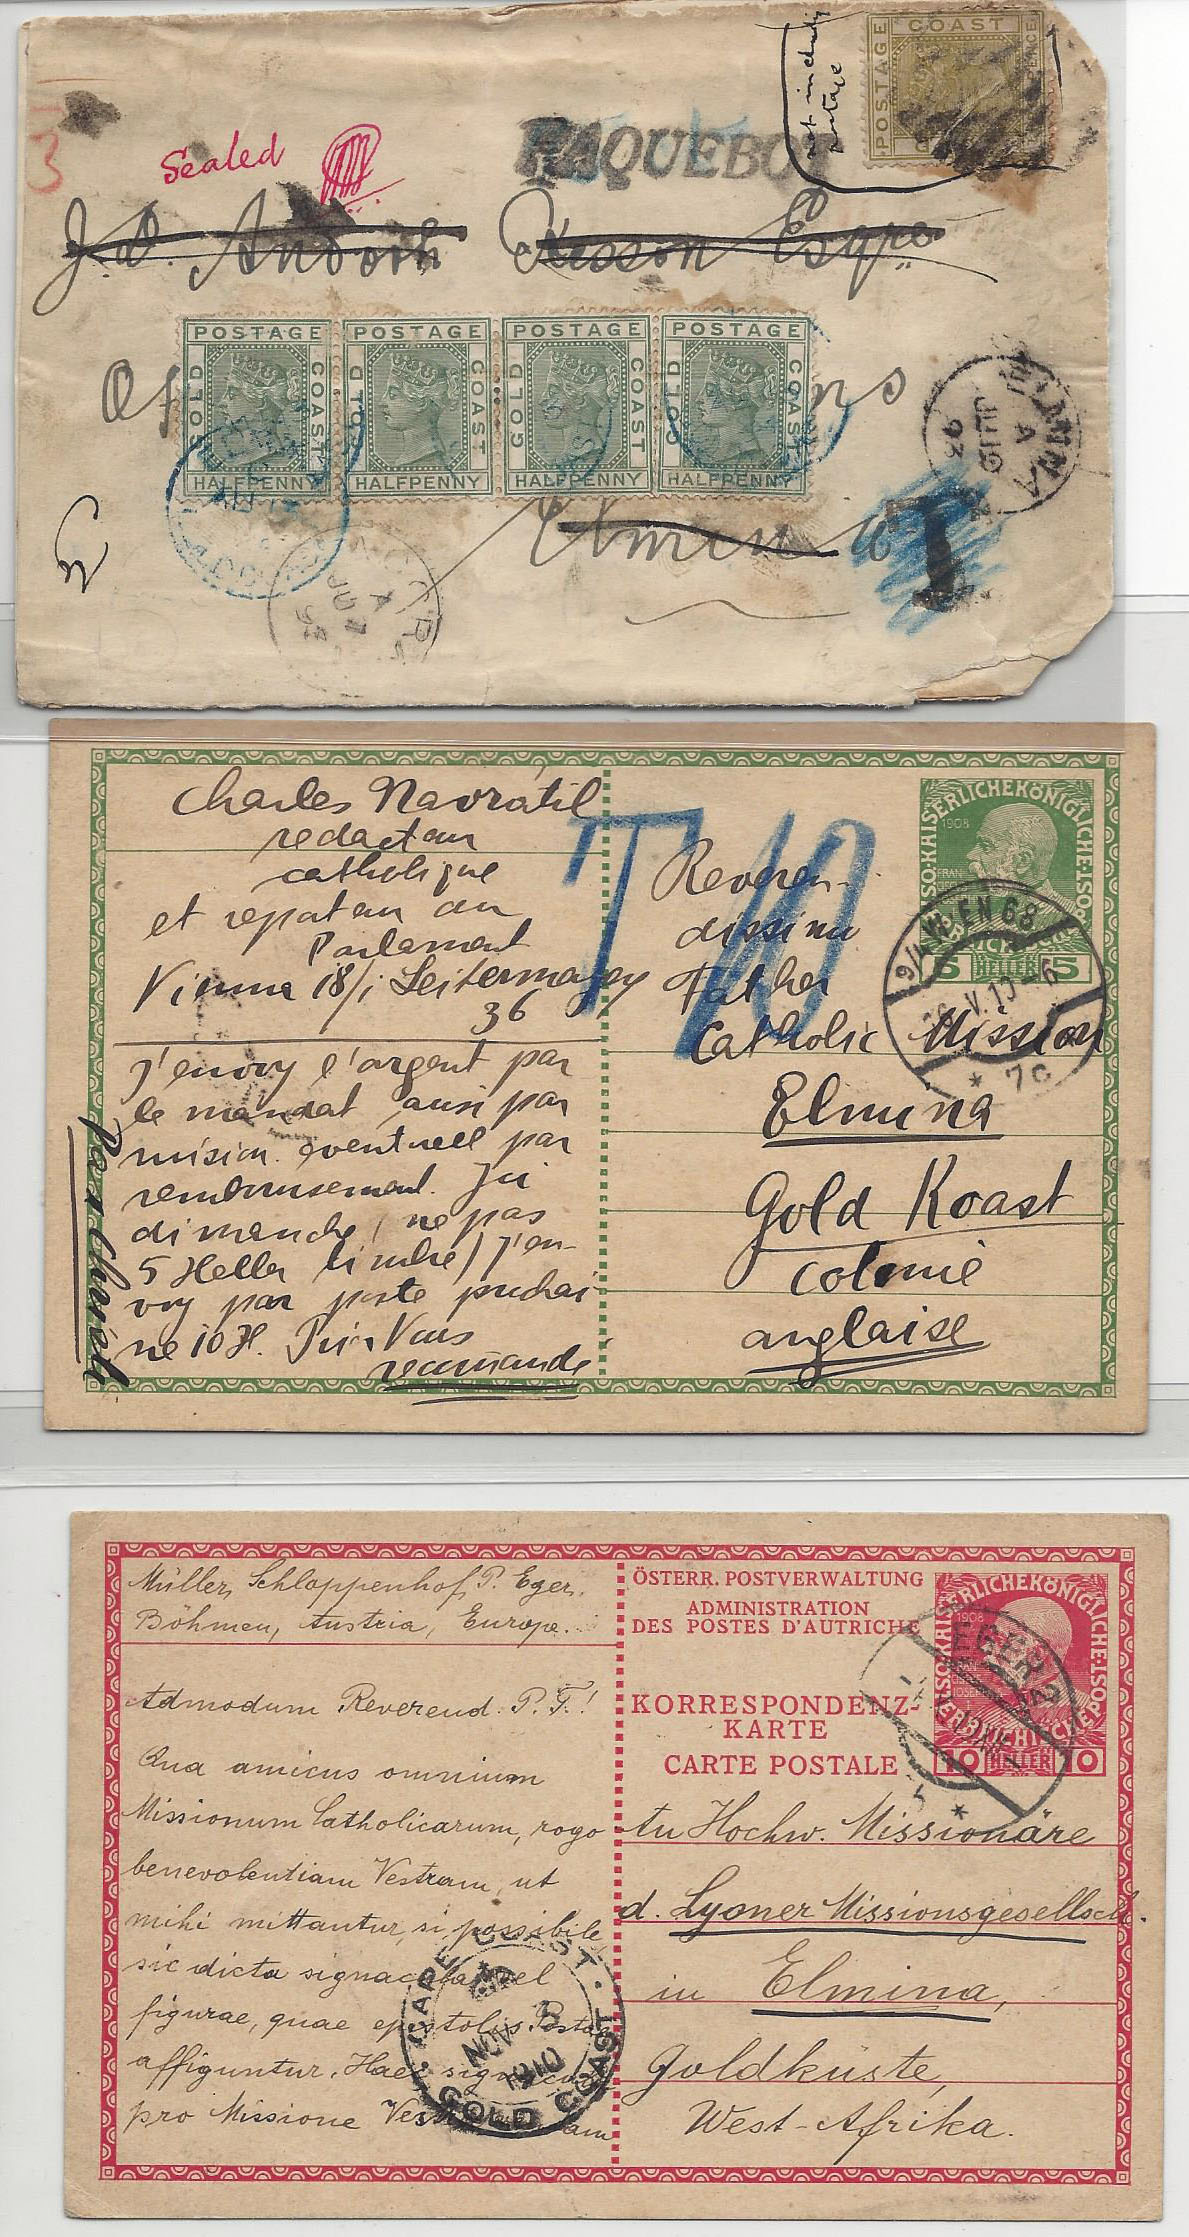 not including
postage
POSTAGE
COAST
3
Sealed
PAQUEBOT
POSTAGE GOLD COAST HALFPENNY
POSTAGE GOLD COAST HALFPENNY
POSTAGE GOLD COAST HALFPENNY
POSTAGE GOLD COAST HALFPENNY
Esqre
Elmina
A
93
ACCRA
A
T
Charles Navrátil
redacteur
catholique
et reporteur au
Parlament
Vienna 18/1 Leitermayerg
36
j'envoy l'argent par
le mandat ausi par
mision eventuell par
remboursement. Ici
dimanche, ne pas
5 Heller timbre) j'en-
voy par poste prochai
ne 10 H. Prie Vous
recomande
T 10
KAISERLICHEKÖNIGLICHE
1908
5 HELLER 5
9/4 WIEN 68
V.10-6
* 7c
Reveren-
dissimu
Father
Catholic Mission
Elmina
Gold Koast
colonie
anglaise
Müller, Schloppenhof, P. Eger,
Böhmen, Austria, Europe.
Admodum Reverend. P. T.!
Qua amicus omnium
Missionum Catholicarum, rogo
benevolentiam Vestram, ut
mihi mittantur, si possibile,
sic dicta signacula vel
figurae, quae epistolis Posta
affiguntur. Haec
pro Missione
CAPE COAST
NOV 3
1910
GOLD COAST
ÖSTERR. POSTVERWALTUNG
ADMINISTRATION
DES POSTES D'AUTRICHE
KORRESPONDENZ-
KARTE
CARTE POSTALE
KAISERLICHEKÖNIGLICHE
1908
10 HELLER 10
EGER 2
An Hochw. Missionäre
d. Lyoner Missionsgesellsch.
in Elmina,
Goldküste,
West-Afrika.